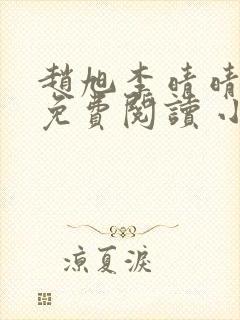 趙旭李晴晴
免費閱讀小
涼夏淚